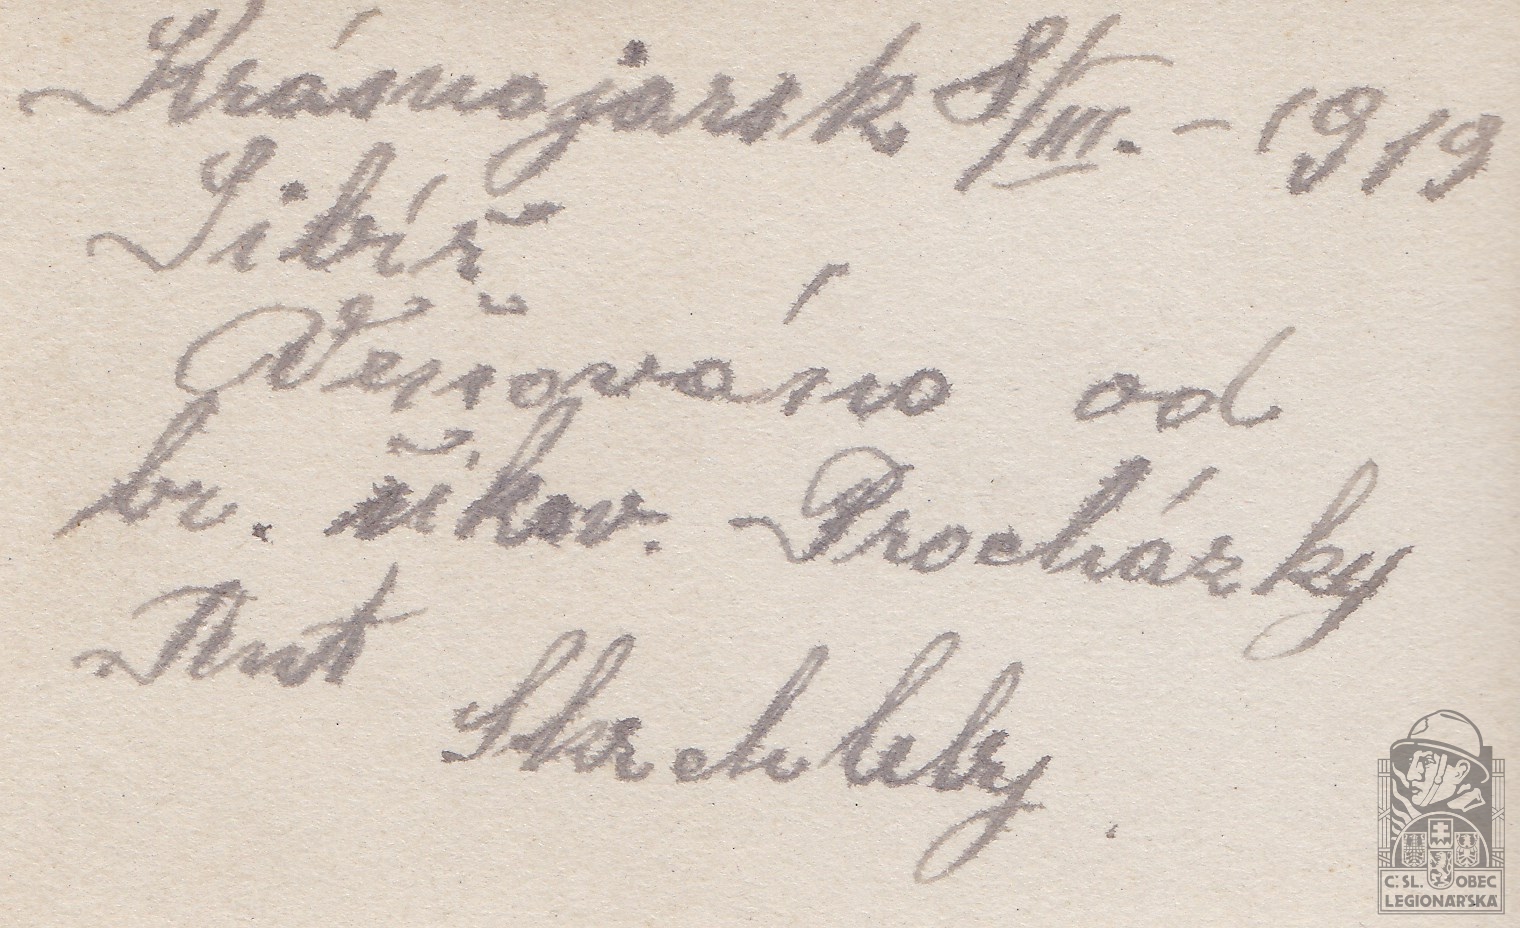 Krásnojarsk 8/III. – 1919
Sibíř
Věnováno od
br. šikov. Procházky
Ant
Skochluby
Č. SL. OBEC
LEGIONÁŘSKÁ